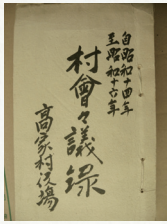 自昭和十四年
至昭和十六年
村會々議録
高家村役場